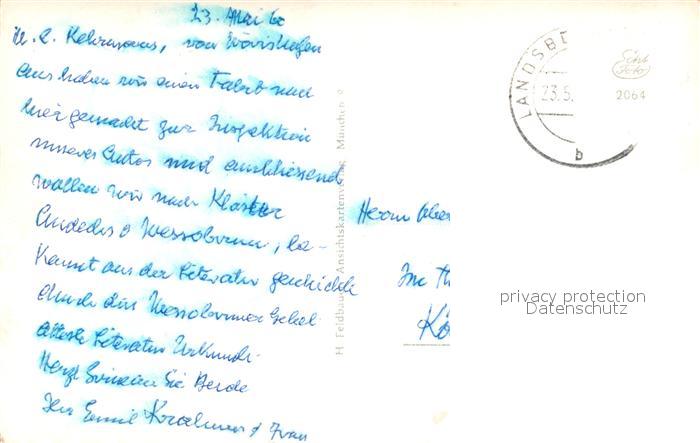 23. Mai 60
von Wörishofen
aus haben wir eine Fahrt nach
hier gemacht zur Inspektion
unseres Autos und anschliessend
wollen wir nach Kloster
Andechs & Wessobrunn, be-
kannt aus der Literaturgeschichte
durch das Wessobrunner Gebet
älteste Literatur Urkunde.
Herzl. Grüsse an Sie Beide
Ihr Emil & Frau
H. Feldbauer, Ansichtskartenverlag, München 2
LANDSBE
23.5.
b
Echt
Foto
2064
Herrn
Im Th
Kö
privacy protection
Datenschutz